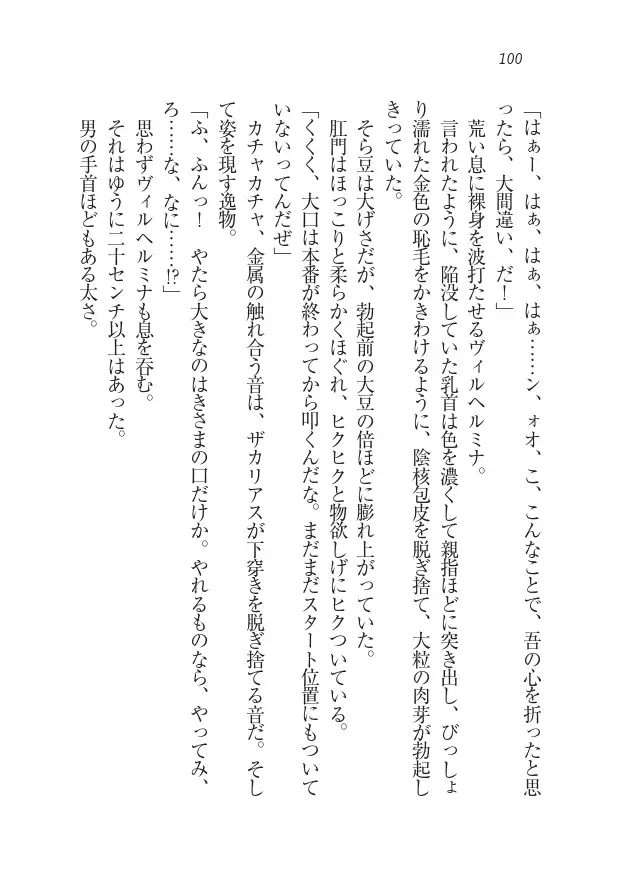 100
「はぁー、はぁ、はぁ、はぁ……ン、ォオ、こ、こんなことで、吾の心を折ったと思
ったら、大間違い、だ！」
荒い息に裸身を波打たせるヴィルヘルミナ。
言われたように、陥没していた乳首は色を濃くして親指ほどに突き出し、びっしょ
り濡れた金色の恥毛をかきわけるように、陰核包皮を脱ぎ捨て、大粒の肉芽が勃起し
きっていた。
そら豆は大げさだが、勃起前の大豆の倍ほどに膨れ上がっていた。
肛門はほっこりと柔らかくほぐれ、ヒクヒクと物欲しげにヒクついている。
「くくく、大口は本番が終わってから叩くんだな。まだまだスタート位置にもついて
いないってんだぜ」
カチャカチャ、金属の触れ合う音は、ザカリアスが下穿きを脱ぎ捨てる音だ。そし
て姿を現す逸物。
「ふ、ふんっ！　やたら大きなのはきさまの口だけか。やれるものなら、やってみ、
ろ……な、なに……!?」
思わずヴィルヘルミナも息を呑む。
それはゆうに二十センチ以上はあった。
男の手首ほどもある太さ。